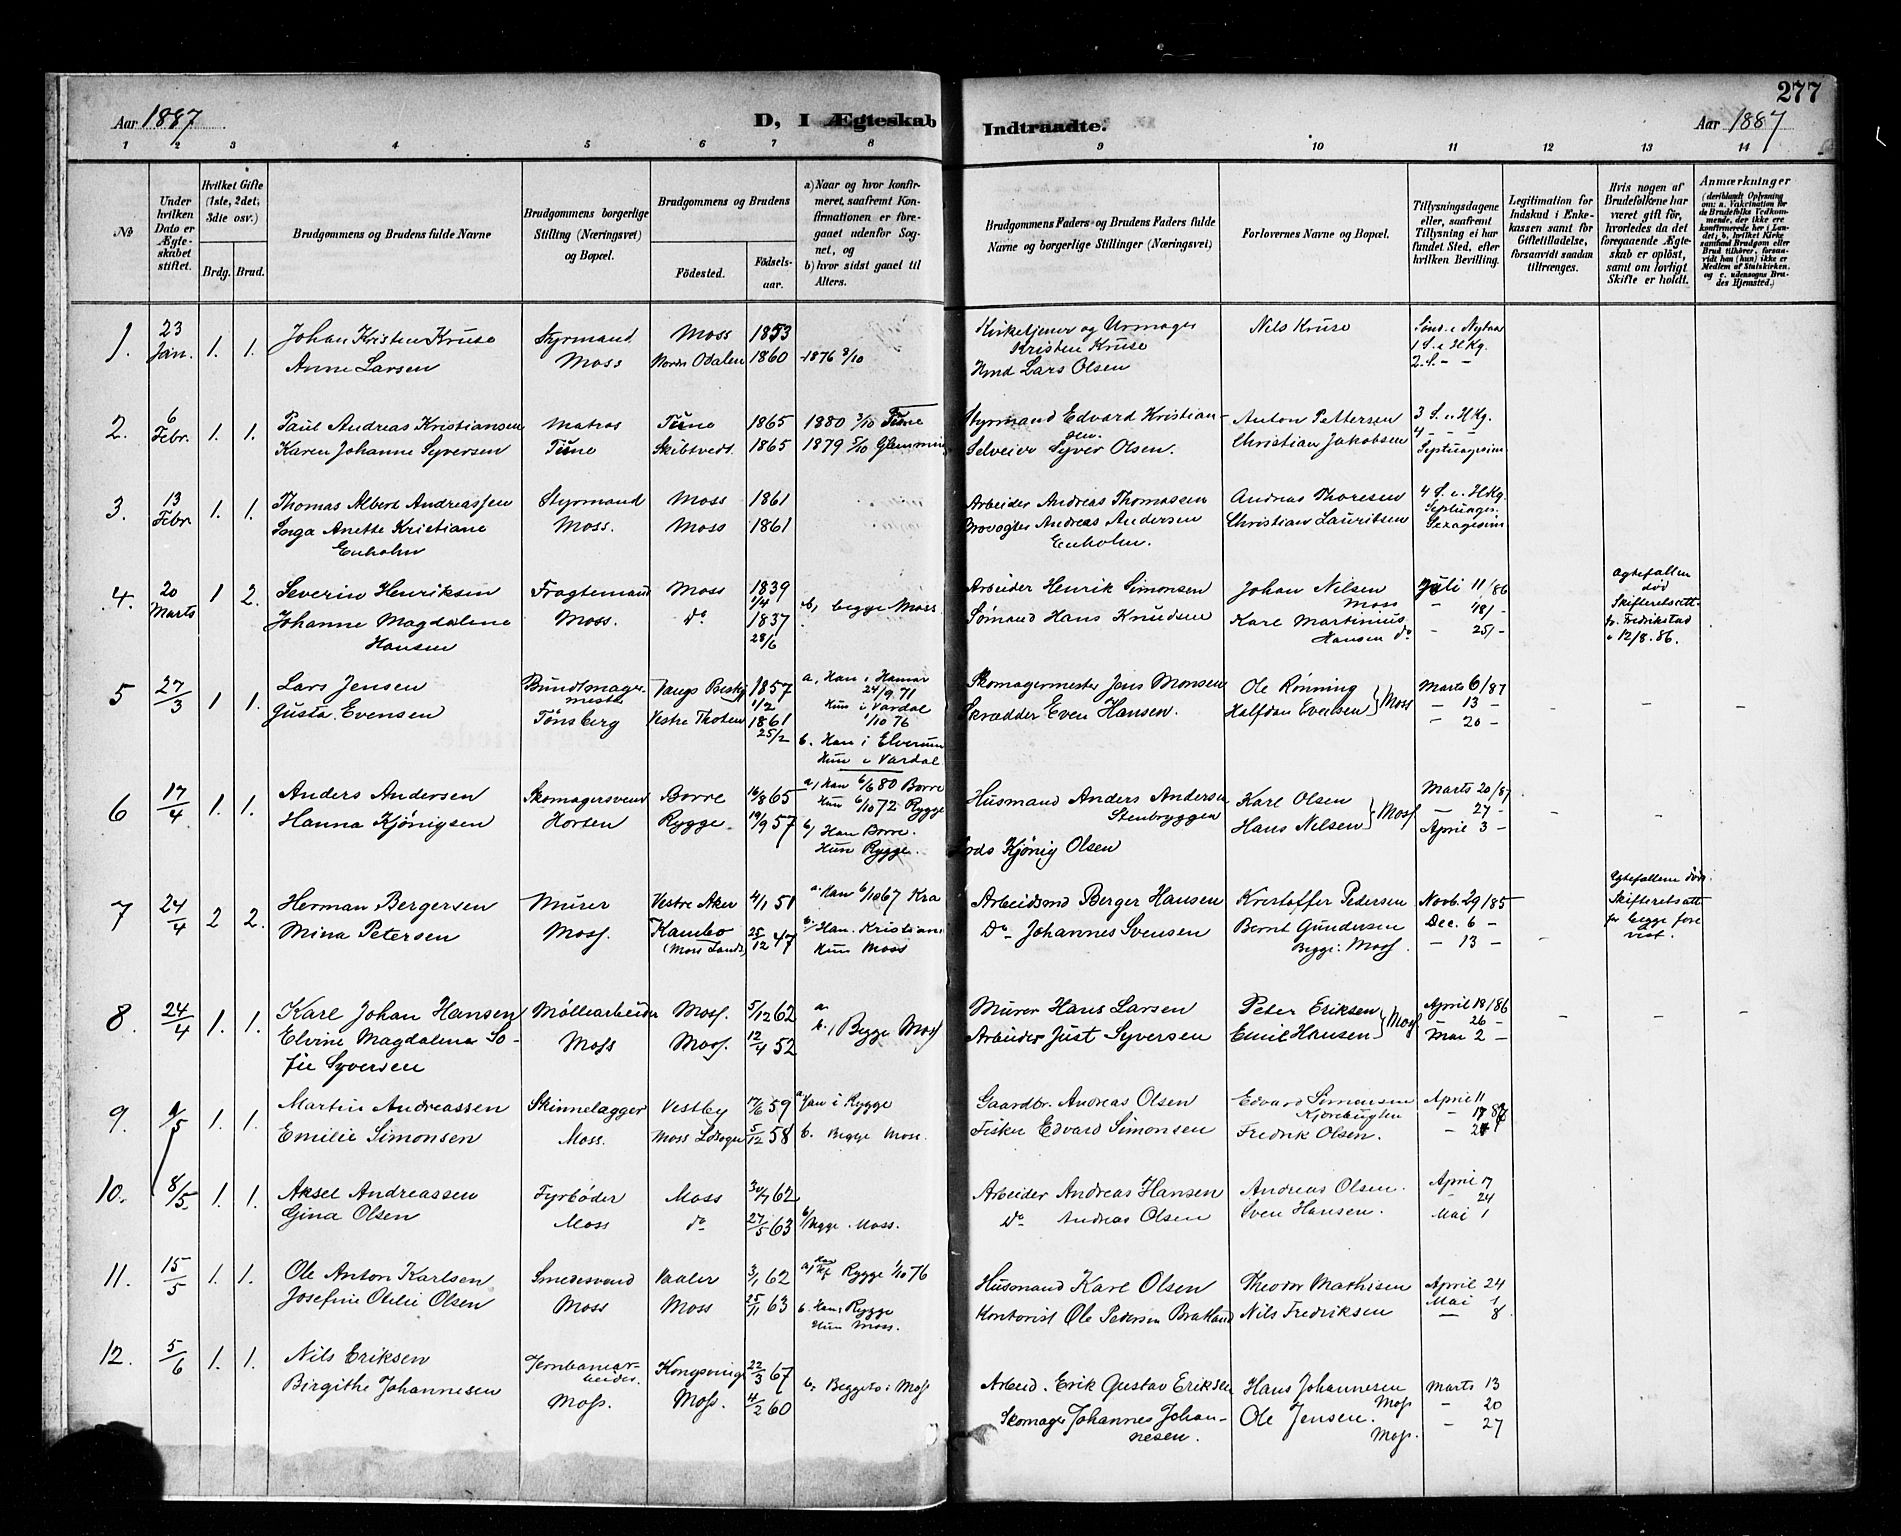 277
Aar 1887.
D, I Ægteskab Indtraadte.
Aar 1887
1 2 3 4 5 6 7 8 9 10 11 12 13 14
No
Under hvilken Dato er Ægteskabet stiftet.
Hvilket Gifte (1ste, 2det; 3die osv.)
Brdg. Brud.
Brudgommens og Brudens fulde Navne
Brudgommens borgerlige Stilling (Næringsvei) og Bopæl.
Brudgommens og Brudens
Födested.
Födsels-aar.
a) Naar og hvor konfirmeret, saafremt Konfirmationen er foregaaet udenfor Sognet, og
b) hvor sidst gaaet til Alters.
Brudgommens Faders og Brudens Faders fulde Navne og borgerlige Stillinger (Næringsvei)
Forlovernes Navne og Bopæl.
Tillysningsdagene eller, saafremt Tillysning ei har fundet Sted, efter hvilken Bevilling.
Legitimation for Indskud i Enkekassen samt for Giftetilladelse, forsaavidt saadan tiltrænges.
Hvis nogen af Brudefolkene har været gift för, hvorledes da det foregaaende Ægteskab er oplöst, samt om lovligt Skifte er holdt.
Anmærkninger
1. 23 Jan. 1. 1. Johan Kristen Kruse Styrmand Moss 1853
Anne Larsen Moss Nordre Odalen 1860 1876 8/10
Kirketjener og Urmager Kristen Kruse Nils Kruse Sönd. e. Nytaar
1 S. e. H.Kg.
Hmd Lars Olsen 2. S. - -
2. 6 Febr. 1. 1. Paul Andreas Kristiansen Matros Tune 1865 1880 3/10 Tune
Karen Johanne Syversen Tune Skibtvedt 1865 1879 5/10 Glemminge
Styrmand Edvard Kristiansen. Anton Pettersen 3 S. e. H.Kg.
Selveier Syver Olsen. Christian Jakobsen 4 - - -
Septuagesim
3. 13 Febr. 1. 1. Thomas Albert Andreassen Styrmand Moss 1861
Inga Anette Kristiane Enholm Moss. Moss 1861
Arbeider Andreas Thomassen Andreas Thoresen 4 S. e. H.Kg.
Brovogter Andreas Andersen Enholm. Christian Lauritsen Septuages.
Sexagesim
4. 20 Marts 1 2. Severin Henriksen Fragtemand Moss 1839 1/4
Johanne Magdalene Hansen Moss. do 1837 28/6
b, begge Moss.
Arbeider Henrik Simonsen Johan Nilsen Moss Juli 11/86
Sømand Hans Knudsen Karl Martinius Hansen do - 18/-
- 25/-
Ægtefællen död Skifteretsatt. fr. Fredrikstad 12/8.86.
5 27/3 1 1. Lars Jensen Bundtmagermester Vangs Prestg 1857 1/2
Gusta Evensen Tönsberg Vestre Thoten 1861 25/2
a, Han i Hamar 24/9.71
Hun i Vardal 1/10 76
b. Han i Elverum
Hun i Vardal.
Skomagermester Jens Monsen Ole Rønning Marts 6/87
Skrædder Even Hansen. Halfdan Evensen } Moss - 13 -
- 20 -
6 17/4 1. 1. Anders Andersen Skomagersvend Borre 16/8 65
Hanna Kjönigsen Horten Rygge 19/9 57
a, Han 6/6 80 Borre
Hun 6/10 72 Rygge
b, Han Borre.
Hun Rygge.
Husmand Anders Andersen Stenbryggen Karl Olsen Marts 20/87
Kjönig Olsen Hans Nilsen } Moss - 27 -
April 3 -
7 24/4 2 2. Herman Bergersen Murer Vestre Aker 4/1 51
Mina Petersen Moss. Kambo (Moss Lands) 25/12 47
a. Han 6/10 67 Kra
b. Han. Kristian
Hun Moss
Arbeidsmd Berger Hansen Kristoffer Pedersen Novb. 29/85
Do Johannes Svensen Bernt Gundersen Dec. 6 -
Begge: Moss. - 13 -
Egtefællene död. Skifteretsatt for begge forevist.
8. 24/4 1. 1. Karl Johan Hansen Møllearbeider Moss. 5/12 62
Elvine Magdalena Sofie Syversen Moss Moss. 12/4 52
a.
b., Begge Moss
Murer Hans Larsen Peter Eriksen April 18/86
Arbeider Just Syversen Emil Hansen } Moss - 26 -
Mai 2 -
9. 1/5 1. 1. Martin Andreassen Skinnelægger Vestby 17/6 59
Emilie Simonsen Moss. Moss Ldsogn 5/12 58
a Han i Rygge
b. Begge Moss.
Gaardbr. Andreas Olsen Edvard Simonsen April 11
Kjærebugten - 17 87
Fisker Edvard Simonsen Fredrik Olsen. - 24
10. 8/5. 1. 1. Aksel Andreassen Fyrbøder Moss 30/7 62
Gina Olsen Moss do 27/5 63
b/ Begge Moss.
Arbeider Andreas Hansen Andreas Olsen. April 17
Do Andreas Olsen Sven Hansen. - 24
Mai 1
11. 15/5 1. 1. Ole Anton Karlsen Smedesvend Vaaler 3/1 62
Josefine Otilie Olsen Moss Moss 25/11 63
a, Han Rygge 1/10 76
b. Han Rygge
Hun Moss.
Husmand Karl Olsen Theodor Mathisen April 24
Kontorist Ole Pedersen Bratland Nils Fredriksen Mai 1
- 8.
12. 5/6 1. 1. Nils Eriksen Jernbanearbeider. Kongsvinger 22/3 67
Birgithe Johannesen Moss. Moss. 4/2 60
b, Begge i Moss
Arbeid. Erik Gustav Eriksen Hans Johannesen Moss Marts 13
- 20
Skomager Johannes Johannesen. Ole Jensen. Moss. - 27